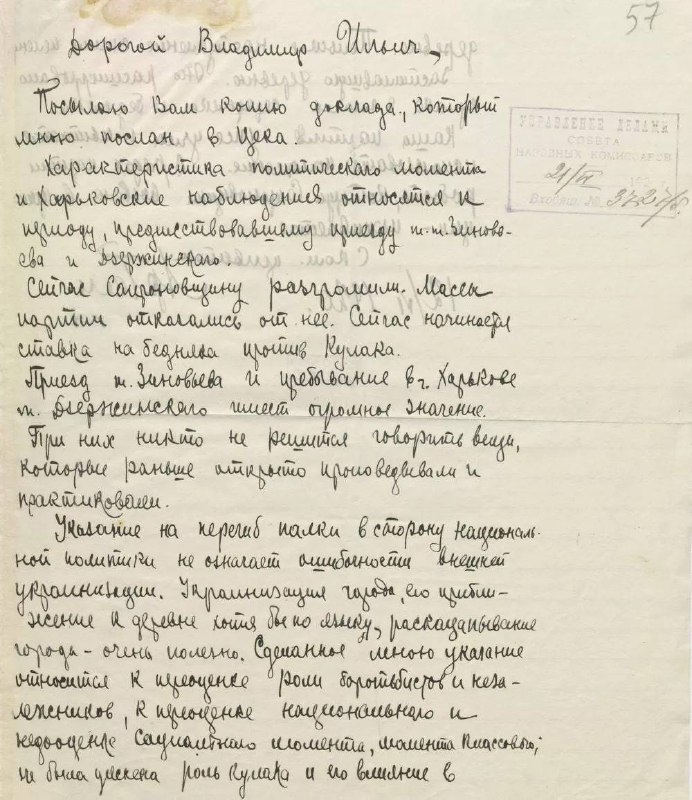 57
Дорогой Владимир Ильич,
УПРАВЛЕНИЕ ДЕЛАМИ
СОВЕТА
НАРОДНЫХ КОМИССАРОВ
21/VI
Входящ. №
Посылаю Вам копию доклада, который
мною послан в Цека.
Характеристика политического момента
и Харьковские наблюдения относятся к
периоду, предшествовавшему приезду т.т. Зиновь-
ева и Дзержинского.
Сейчас Сапроновщину разгромили. Массы
партии отказались от нее. Сейчас начинается
ставка на бедняка против Кулака.
Приезд т. Зиновьева и пребывание в г. Харькове
т. Дзержинского имеет огромное значение.
При них никто не решится говорить вещи,
которые раньше открыто проповедывали и
практиковали.
Указание на перегиб палки в сторону националь-
ной политики не означает ошибочности внешней
украинизации. Украинизация города, его прибли-
жение к деревне хотя бы по языку, раскацапывание
города - очень полезно. Сделанное мною указание
относится к переоценке роли боротьбистов и неза-
лежников, к переоценке национального и
недооценке социального момента, момента классового;
не была учтена роль кулака и его влияние в